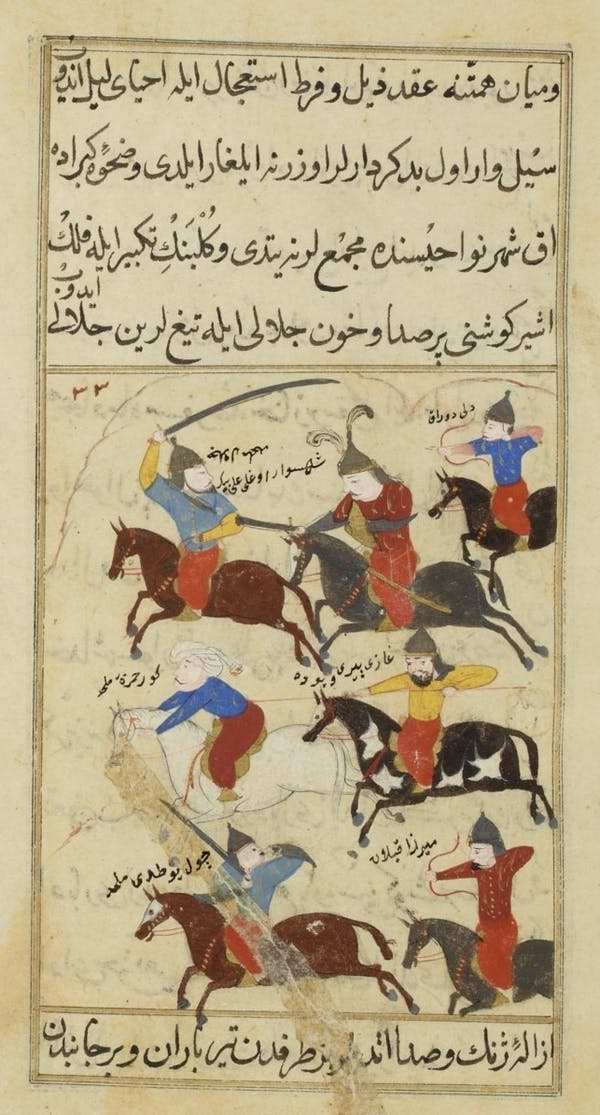 و میان همتنه عقد ذیل و فرط استعجال ایله احیای لیل ایدوب
سیل وار اول بدکردارلر اوزرنه ایلغار ایلدی و ضحوۀ کبراده
اق شهر نواحیسنده مجمع لرنه یتدی و کلبنک تکبیر ایله فلک
اثیر کوشنی پر صدا و خون جلالی ایله تیغ لرین جلالی ایدوب
۳۳
دلی دوراق
شهسوار اوغلی علی بک
جلال ملحد
غازی پیری
کور حمزه ملحد
میرزا قپلان
ملحد
از اله ژنک و صدا طرفدن تیر باران و بر جانبدن